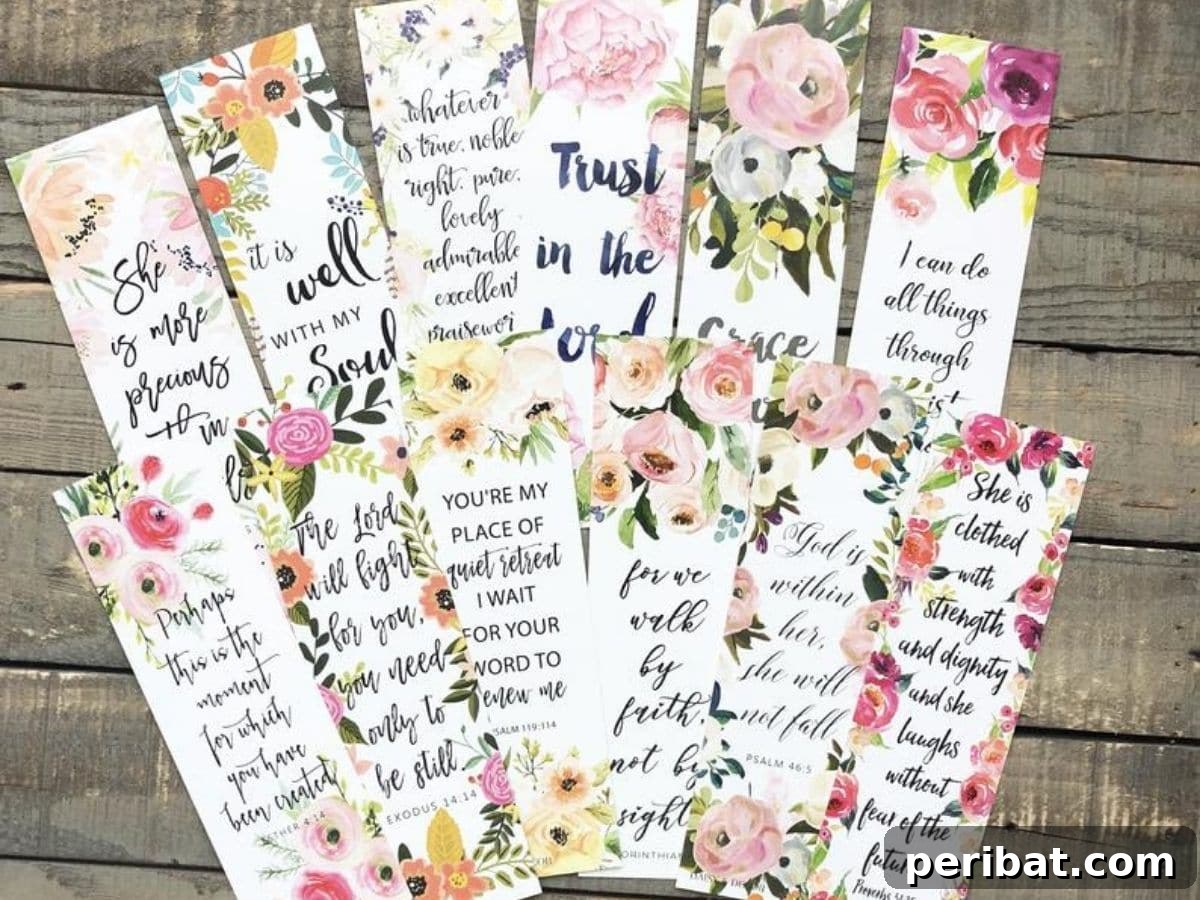 She
is more
precious
than
it is
well
WITH MY
Soul
whatever
is true, noble
right, pure,
lovely
admirable
excellent
Trust
in the
Lord
Grace
I can do
all things
through
Perhaps
this is the
moment
for which
you have
been created
ESTHER 4:14
The Lord
will fight
for you,
you need
only to
be still.
EXODUS 14:14
YOU'RE MY
PLACE OF
quiet retreat
I WAIT
FOR YOUR
WORD TO
renew me
PSALM 119:114
for we
walk
by
faith,
not by
sight
God is
within
her,
she will
not fall
PSALM 46:5
She is
clothed
with
strength
and dignity
and she
laughs
without
fear of the
future
Proverbs
peribat.com